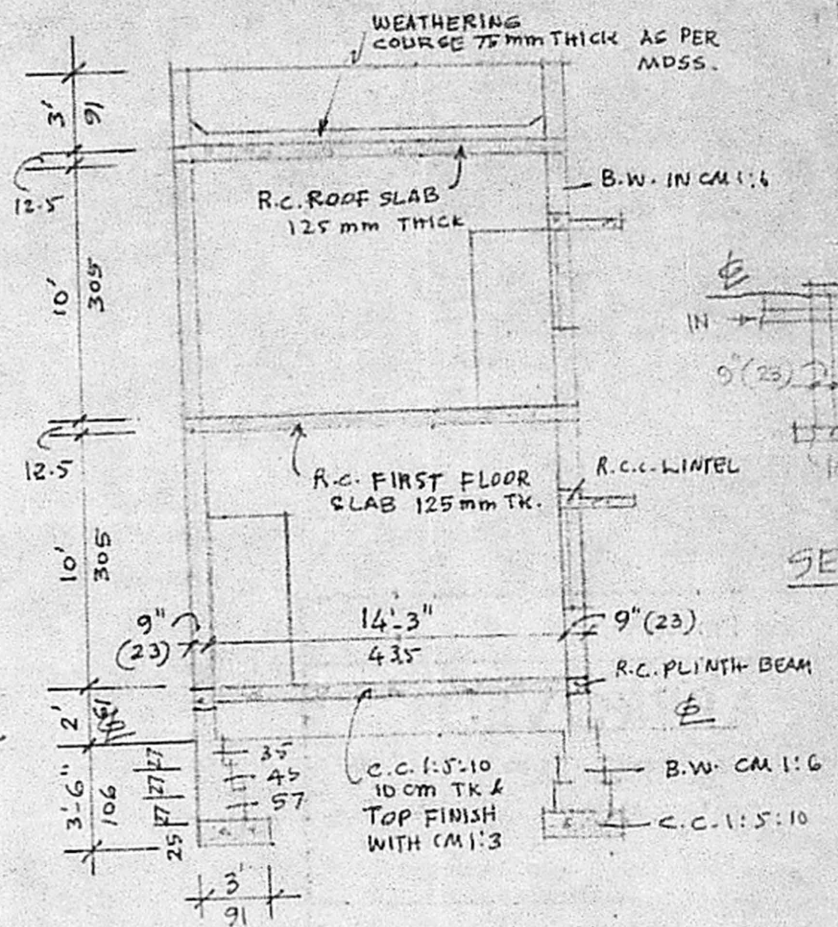 WEATHERING
COURSE 75 mm THICK AS PER
MDSS.
3'
91
12.5
R.C. ROOF SLAB
125 mm THICK
B.W. IN CM 1:6
10'
305
IN
9"(23)
12.5
R.C. FIRST FLOOR
SLAB 125 mm TK.
R.C.C. LINTEL
10'
305
SE
9"
(23)
14'-3"
435
9"(23)
R.C. PLINTH BEAM
2'
61
3'-6"
106
27
27
27
25
35
45
57
C.C. 1:5:10
10 cm TK &
TOP FINISH
WITH CM 1:3
B.W. CM 1:6
C.C. 1:5:10
3'
91